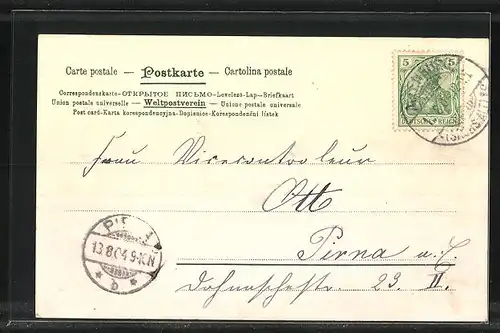 Carte postale — Postkarte — Cartolina postale
Correspondenzkarte-ОТКРЫТОЕ ПИСЬМО-Levelezö-Lap-Briefkaart
Union postale universelle — Weltpostverein — Unione postale universale
Post card-Karta korespondencyjna-Dopisnice-Korespondenční lístek
5 5
DEUTSCHES REICH
Frau Vicecontrolleur
Ott
Pirna a. E.
Dohnaischestr. 23 II.
13 8 04 9-10 N
* b *